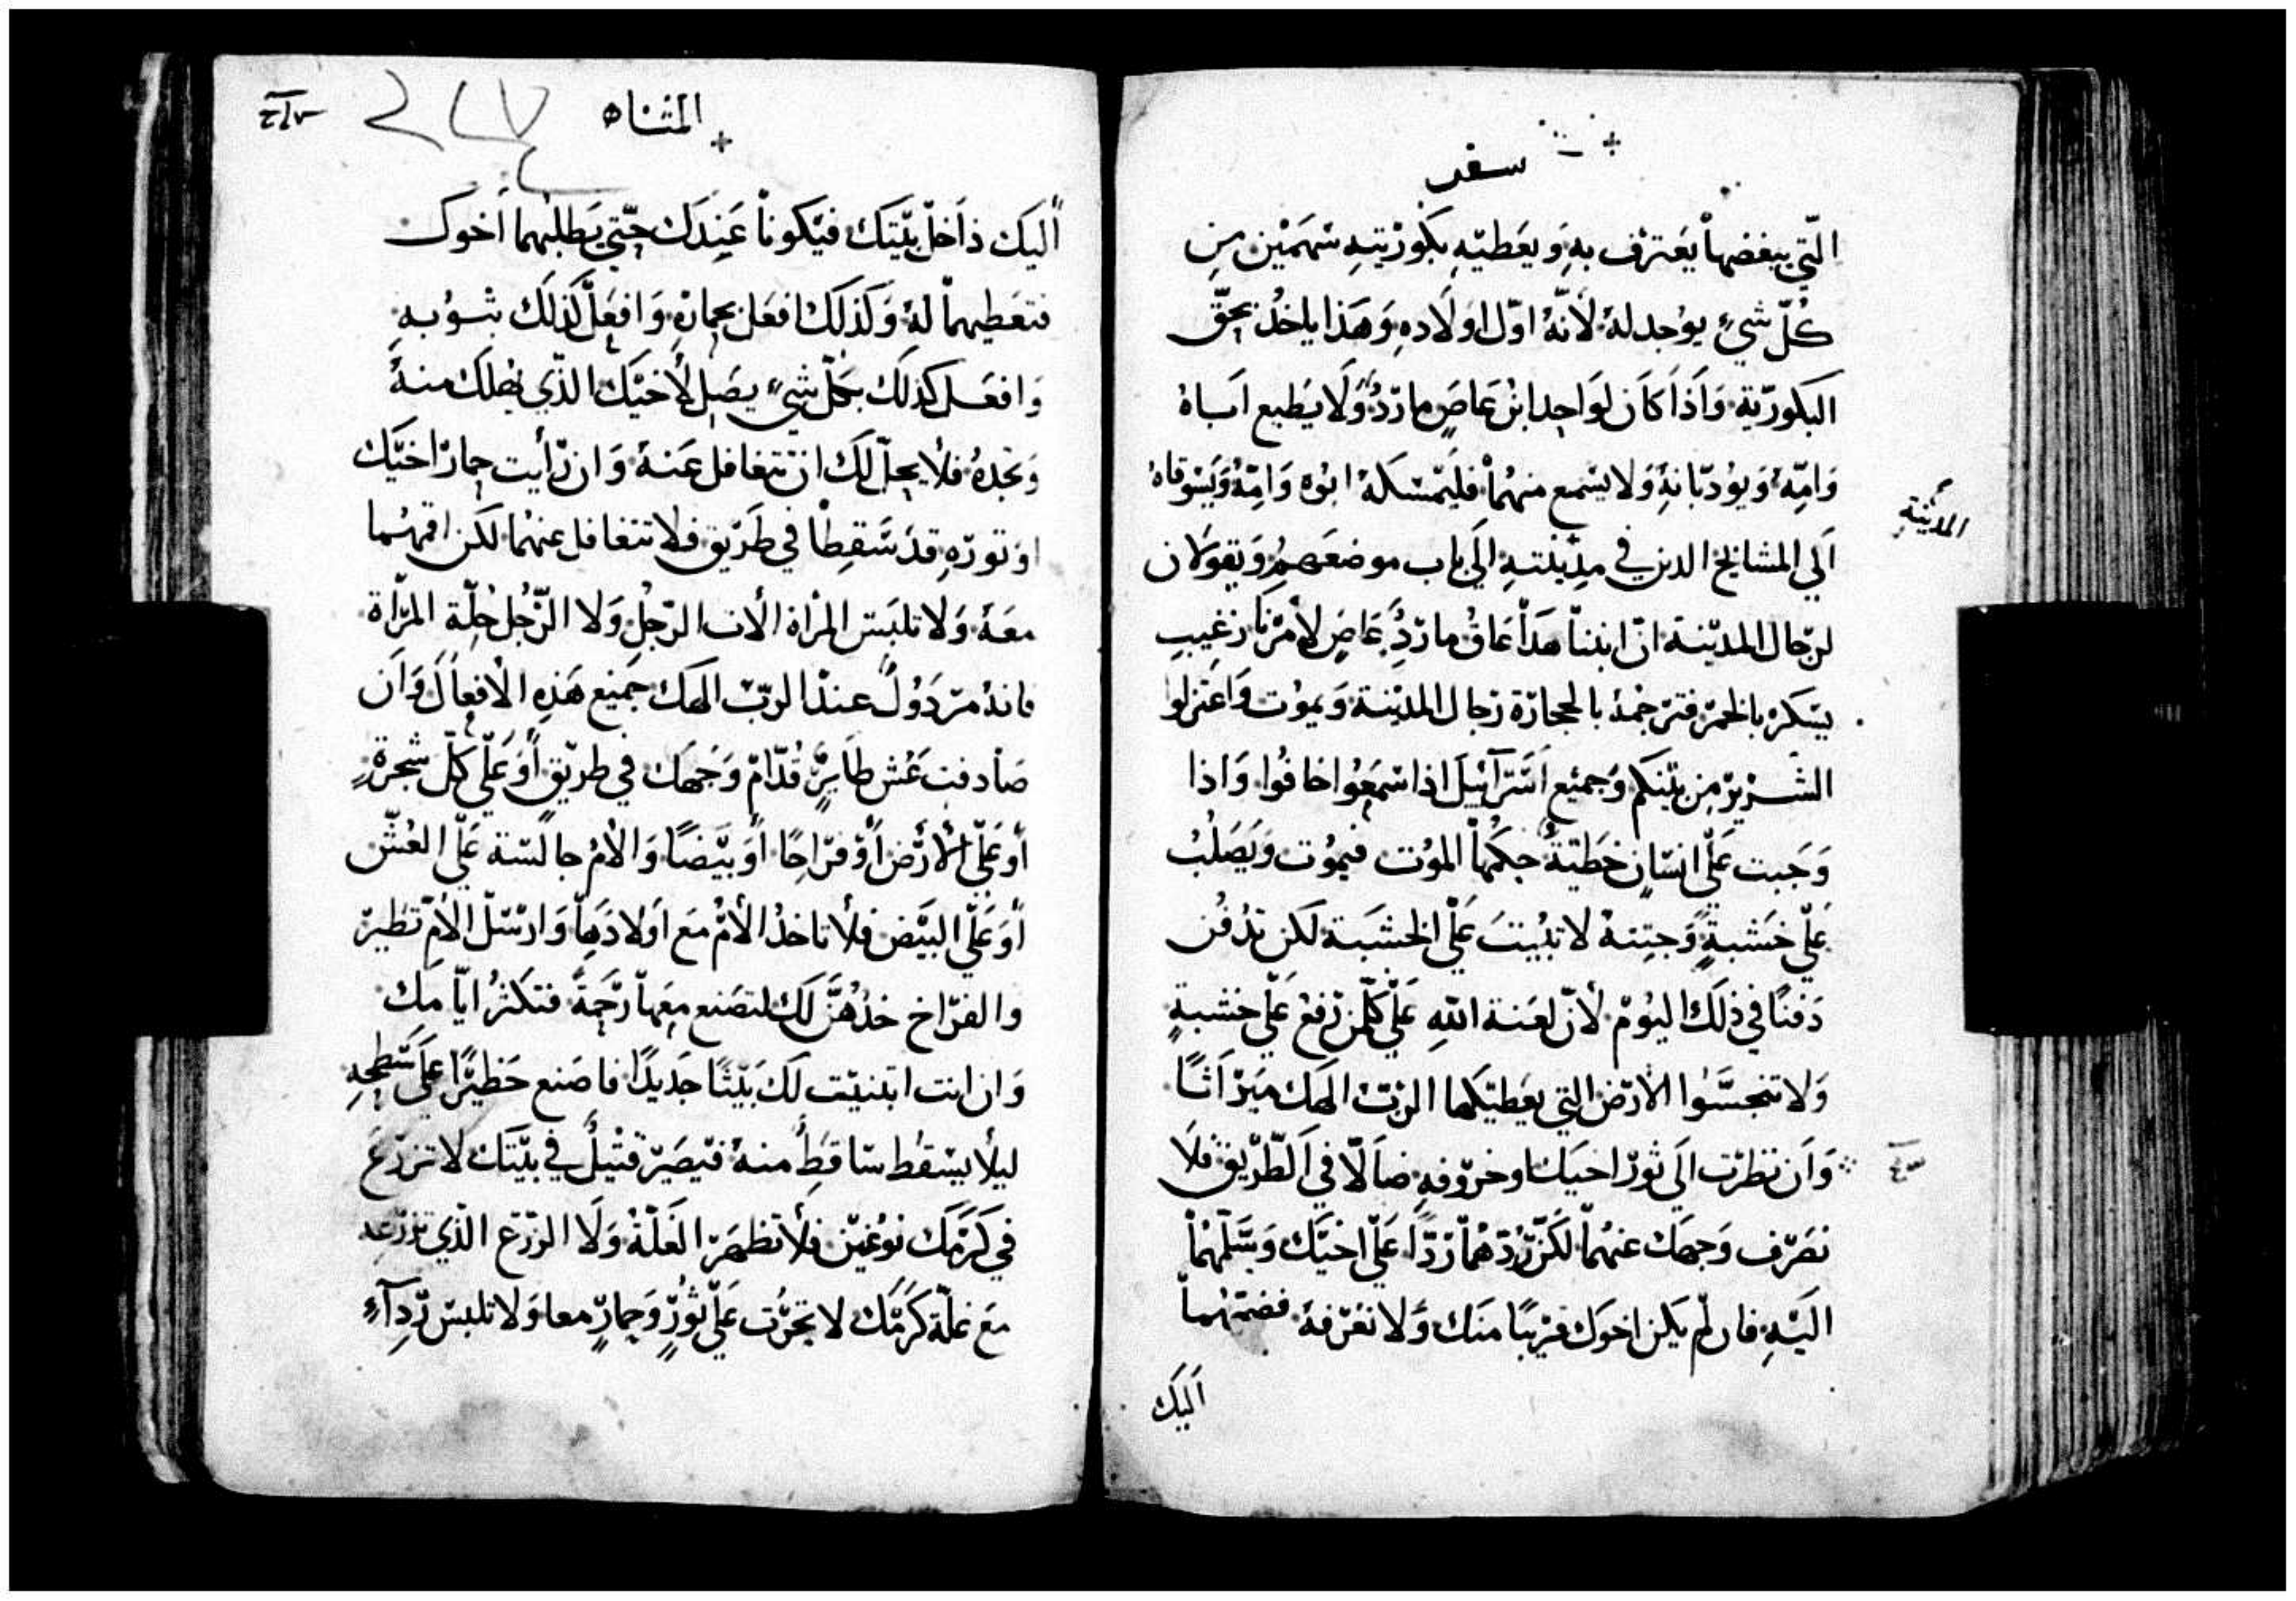 سفر
التي يبغضها يعترف به ويعطيه بكوريته سهمين من
كل شيء يوجد له لانه اول اولاده وهذا ياخذ بحق
البكورية واذا كان لواحد ابن عاص مارد ولا يطيع اباه
وامه ويودبانه ولا يسمع منهما فليمسكه ابوه وامه ويسوقاه
الي المشايخ الدين في مدينته الى باب موضعهم ويقولان
لرجال المدينة ان ابننا هذا عاق مارد عاص لامرنا رغيب
يسكر بالخمر فترجمه بالحجارة رجال المدينة ويموت واعتزلوا
الشرير من بينكم وجميع اسرآئيل اذا سمعوا خافوا واذا
وجبت علي انسان خطية حكمها الموت فيموت ويصلب
علي خشبة وجتته لا تبيت علي الخشبة لكن تدفن
دفنا في ذلك اليوم لان لعنة الله علي كلمن رفع علي خشبة
ولا تنجسوا الارض التي يعطيكها الرب الهك ميراثا
وان نظرت الى ثور اخيك او خروفه ضالا في الطريق فلا
تصرف وجهك عنهما لكن ردهما ردا علي اخيك وسلمهما
اليه فان لم يكن اخوك قريبا منك ولا تعرفه فضمهما
اليك
المدينة
المثناه
اليك داخل بيتك فيكونا عندك حتي يطلبهما اخوك
فتعطيهما له وكذلك افعل بحماره وافعل كذلك بثوبه
وافعل كذلك بكل شيء يضل لاخيك الذي يهلك منه
وتجده فلا يحل لك ان تتغافل عنه وان رأيت حمار اخيك
او توره قد سقطا في طريق فلا تتغافل عنهما لكن اقمهما
معه ولا تلبس المراة الات الرجل ولا الرجل حلة المرأة
فانه مردول عند الرب الهك جميع هذه الافعال وان
صادفت عش طاير قدام وجهك في طريق او علي كل شجرة
أو علي الأرض أو فراخا او بيضا والام جالسة علي العش
أو علي البيض فلا تاخد الأم مع اولادها وارسل الأم تطير
والفراخ خذهن لك لتصنع معها رحمة فتكثر ايامك
وان انت ابتنيت لك بيتا جديدا فاصنع حظيرا علي سطحه
ليلا يسقط ساقط منه فيصير قتيل في بيتك لا تزرع
في كرمك نوعين فلا تظهر الغلة ولا الزرع الذي تزرعه
مع غلة كرمك لا تحرت علي ثور وحمار معا ولا تلبس ردآء